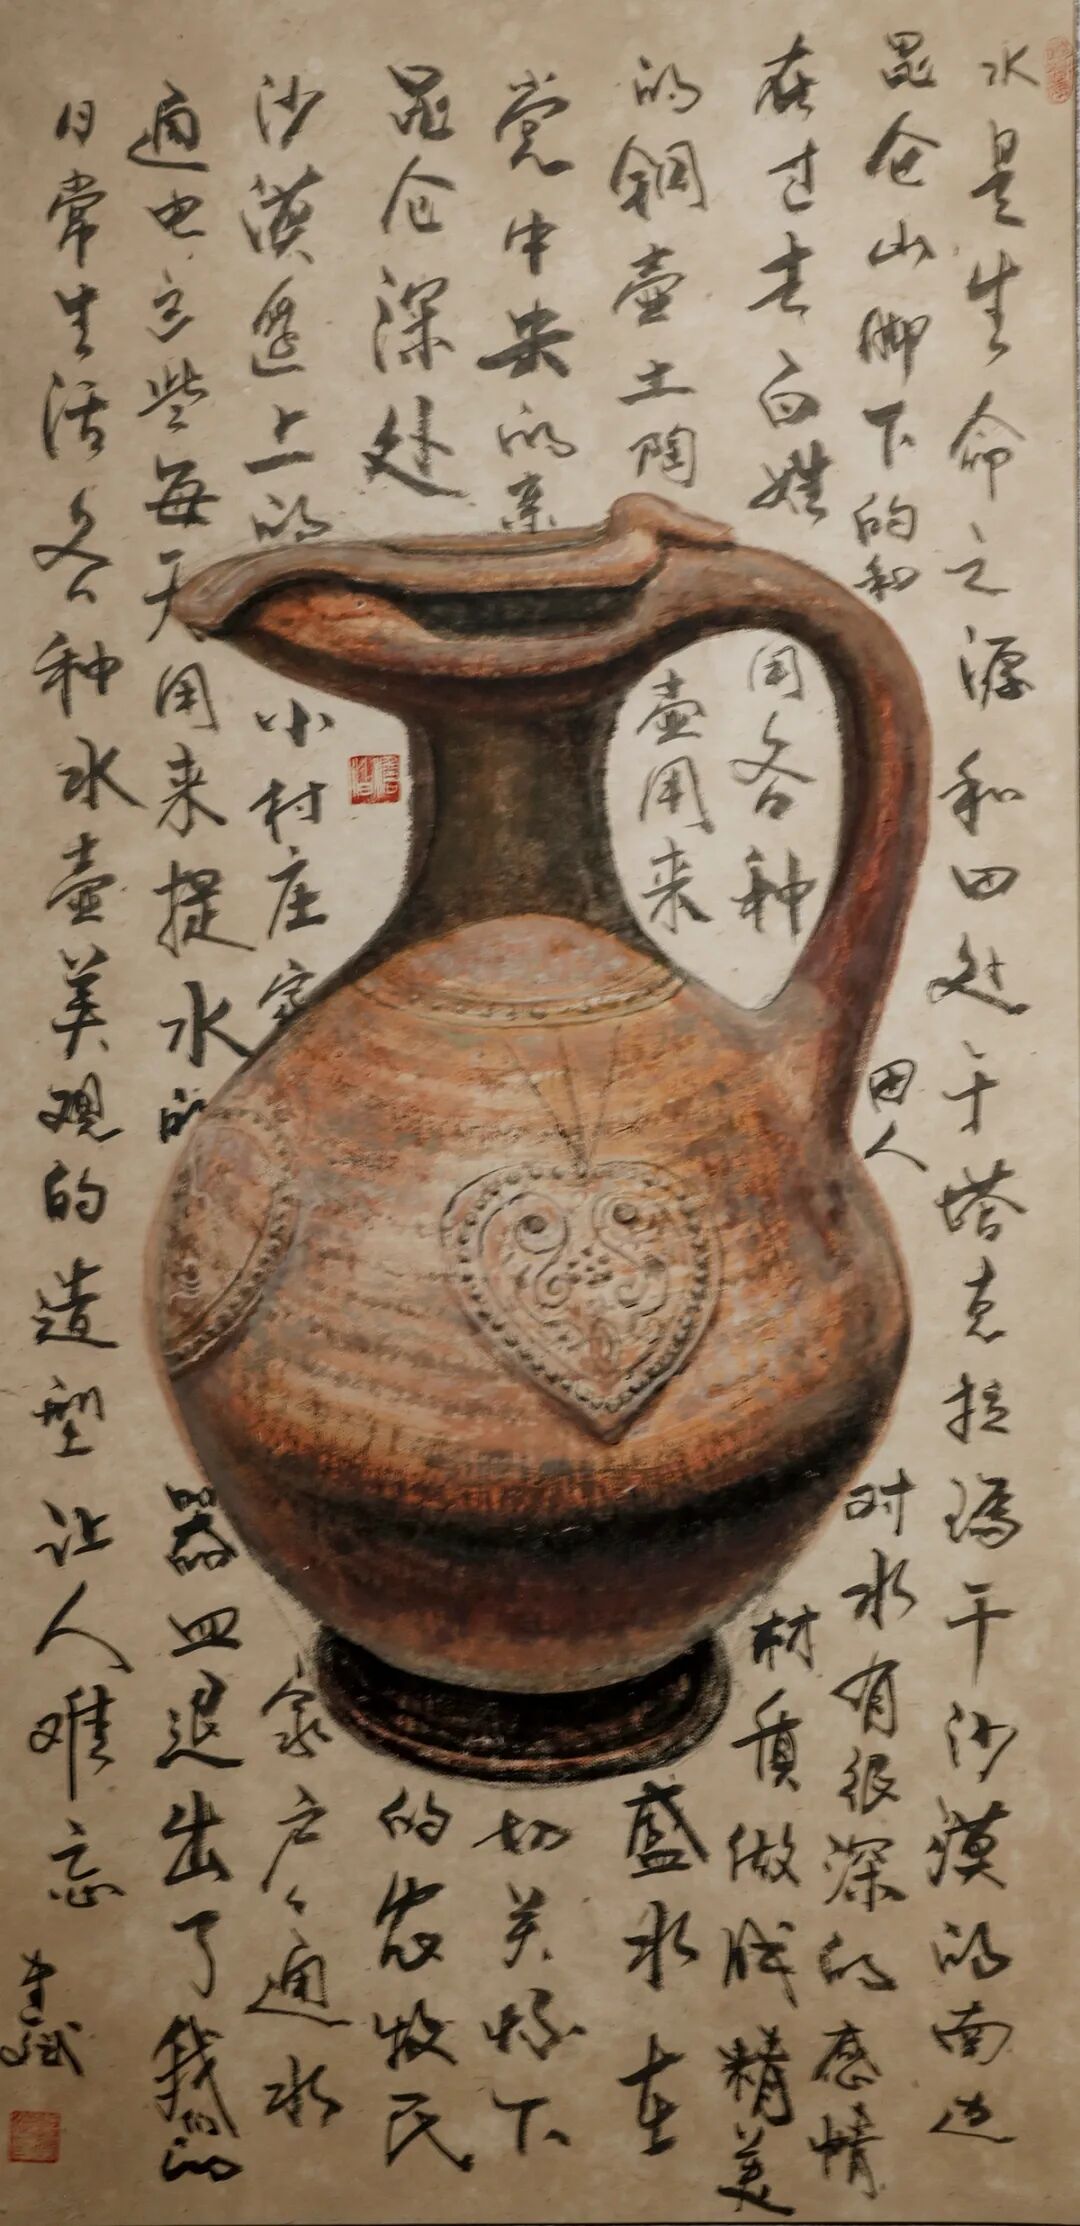 水是生命之源和田处于塔克拉玛干沙漠的南边
昆仑山脚下的和田人对水有很深的感情
在过去百姓用各种材质做成精美
的铜壶土陶壶用来盛水在
党中央的亲切关怀下
昆仑深处的农牧民
沙漠边上的小村庄家家户户通水
通电了这些每天用来提水的器皿退出了我们的
日常生活各种水壶美观的造型让人难忘